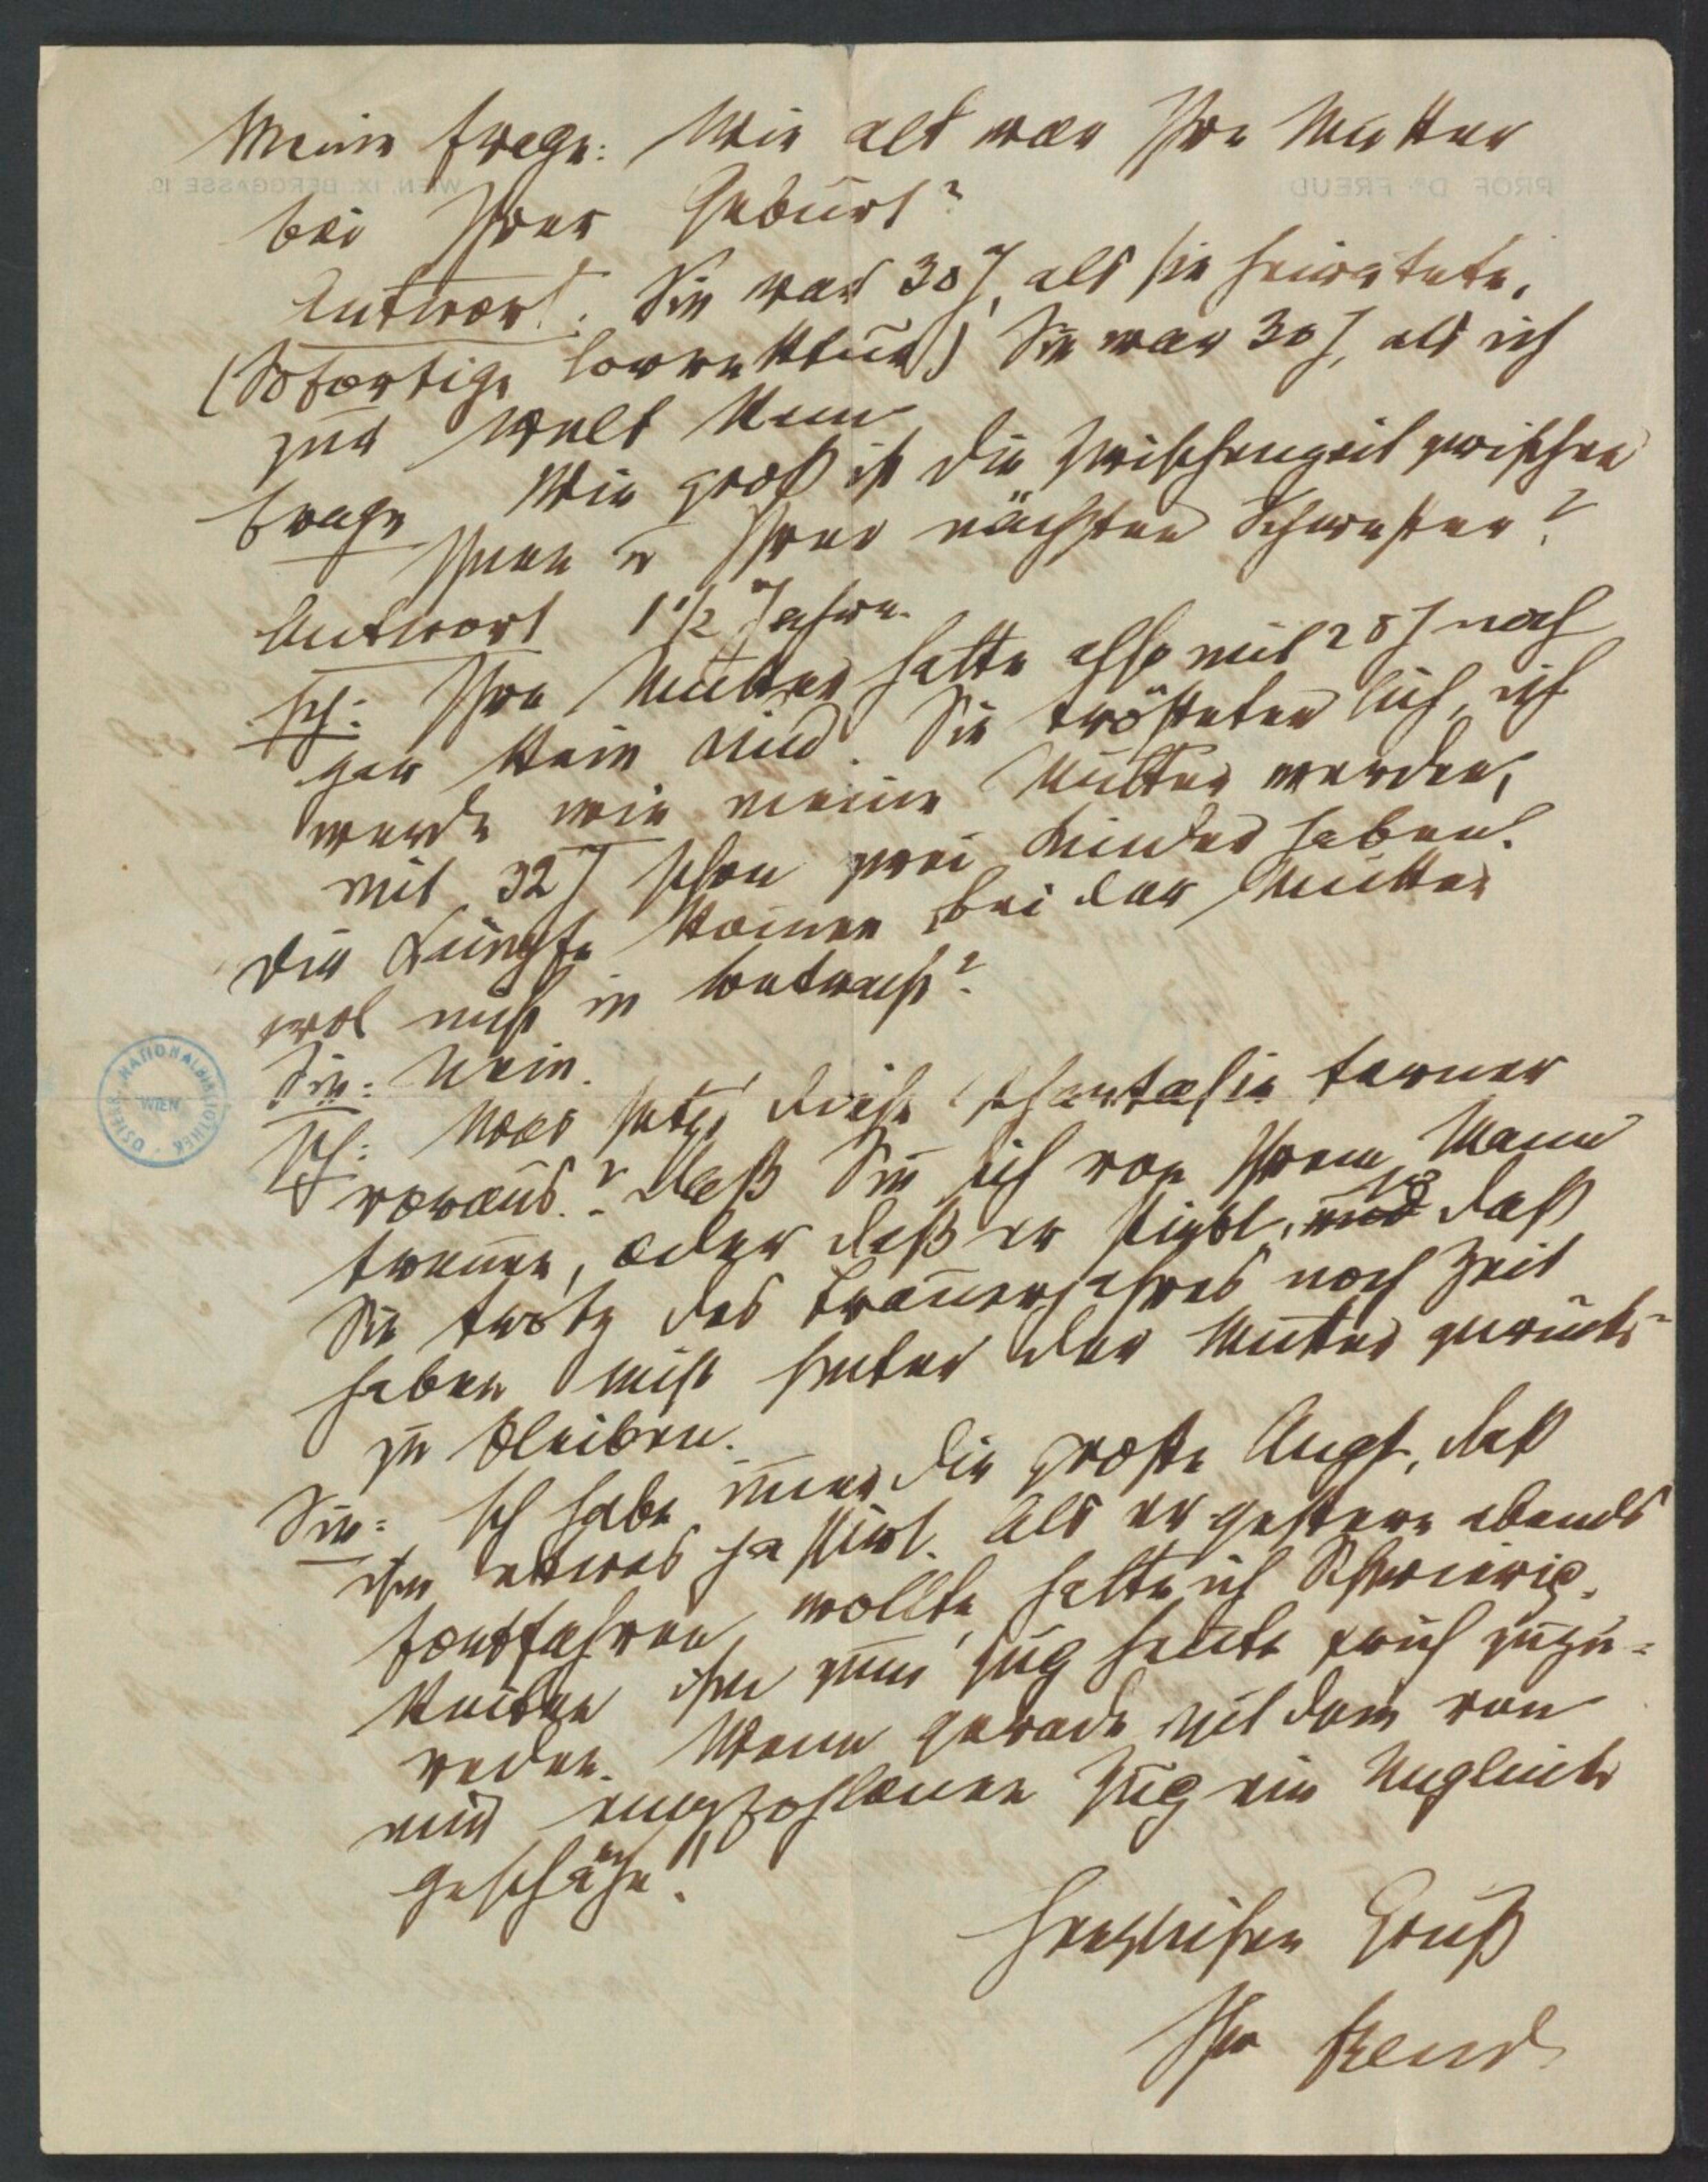 Meine Frage: Wie alt war Ihre Mutter
bei Ihrer Geburt?
Antwort: Sie war 30 J, als sie heiratete,
(Sofortige Correktur) Sie war 30 J, als ich
zur Welt kam
Frage Wie groß ist die Zwischenzeit zwischen
Ihnen u Ihrer nächsten Schwester?
Antwort 1 1/2 Jahre.
Ich: Ihre Mutter hatte also mit 28 J noch
gar kein Kind. Sie trösteten sich, ich
werde wie meine Mutter werden,
mit 32 J schon zwei Kinder haben.
Die Jüngste kommen bei der Mutter
wol nicht in Betracht?
Sie: Nein.
Ich: Was setzt diese Phantasie ferner
voraus? Daß Sie sich von Ihrem Mann
trennen, oder daß er stirbt, und daß
Sie trotz des Trauerjahres noch Zeit
haben nicht hinter der Mutter zurück-
zu bleiben.
Sie: Ich habe immer die größte Angst, daß
ihm etwas passiert. Als er gestern abends
fortfahren wollte, hatte ich Schwierig-
keiten ihm zum Zug heute früh zuzu=
reden. Wenn gerade mit dem von
mir empfohlenen Zug ein Unglück
geschähe!
Herzlichen Gruß
Ihr Freud
PROF. DR. FREUD
WIEN, IX. BERGGASSE 19.
ÖSTERR. NATIONALBIBLIOTHEK
WIEN